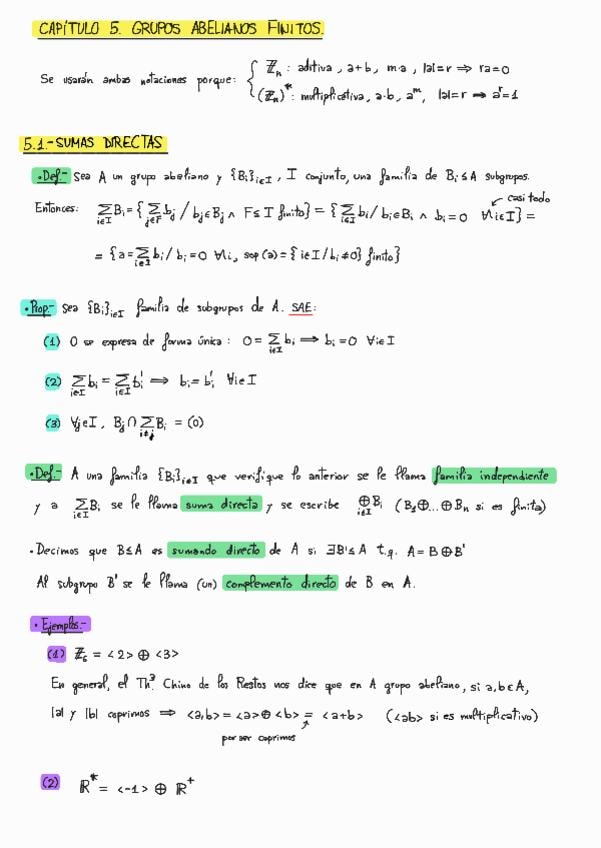 CAPÍTULO 5. GRUPOS ABELIANOS FINITOS.
Se usarán ambas notaciones porque: { ℤₙ : aditiva, a+b, m·a, |a|=r ⟹ ra=0
(ℤₙ)* : multiplicativa, a·b, aᵐ, |a|=r ⟹ aʳ=1
5.1.- SUMAS DIRECTAS
• Def.- Sea A un grupo abeliano y {Bᵢ}ᵢ∈I , I conjunto, una familia de Bᵢ ≤ A subgrupos.
casi todo
Entonces: ∑ᵢ∈I Bᵢ = { ∑ⱼ∈F bⱼ / bⱼ∈Bⱼ ∧ F⊆I finito} = { ∑ᵢ∈I bᵢ / bᵢ∈Bᵢ ∧ bᵢ=0 ∀i∈I} =
= {a = ∑ᵢ∈I bᵢ / bᵢ=0 ∀i, sop(a) = {i∈I / bᵢ≠0} finito}
• Prop.- Sea {Bᵢ}ᵢ∈I familia de subgrupos de A. SAE:
(1) 0 se expresa de forma única: 0 = ∑ᵢ∈I bᵢ ⟹ bᵢ=0 ∀i∈I
(2) ∑ᵢ∈I bᵢ = ∑ᵢ∈I bᵢ' ⟹ bᵢ = bᵢ' ∀i∈I
(3) ∀j∈I, Bⱼ ∩ ∑ᵢ≠ⱼ Bᵢ = (0)
• Def.- A una familia {Bᵢ}ᵢ∈I que verifique lo anterior se le llama familia independiente
y a ∑ᵢ∈I Bᵢ se le llama suma directa y se escribe ⊕ᵢ∈I Bᵢ (B₁⊕...⊕Bₙ si es finita)
• Decimos que B≤A es sumando directo de A si ∃B'≤A t.q. A = B⊕B'
Al subgrupo B' se le llama (un) complemento directo de B en A.
• Ejemplos.-
(1) ℤ₆ = <2> ⊕ <3>
En general, el Thª Chino de los Restos nos dice que en A grupo abeliano, si a,b∈A,
|a| y |b| coprimos ⟹ <a,b> = <a>⊕<b> = <a+b> (<ab> si es multiplicativo)
por ser coprimos
(2) ℝ* = <-1> ⊕ ℝ⁺